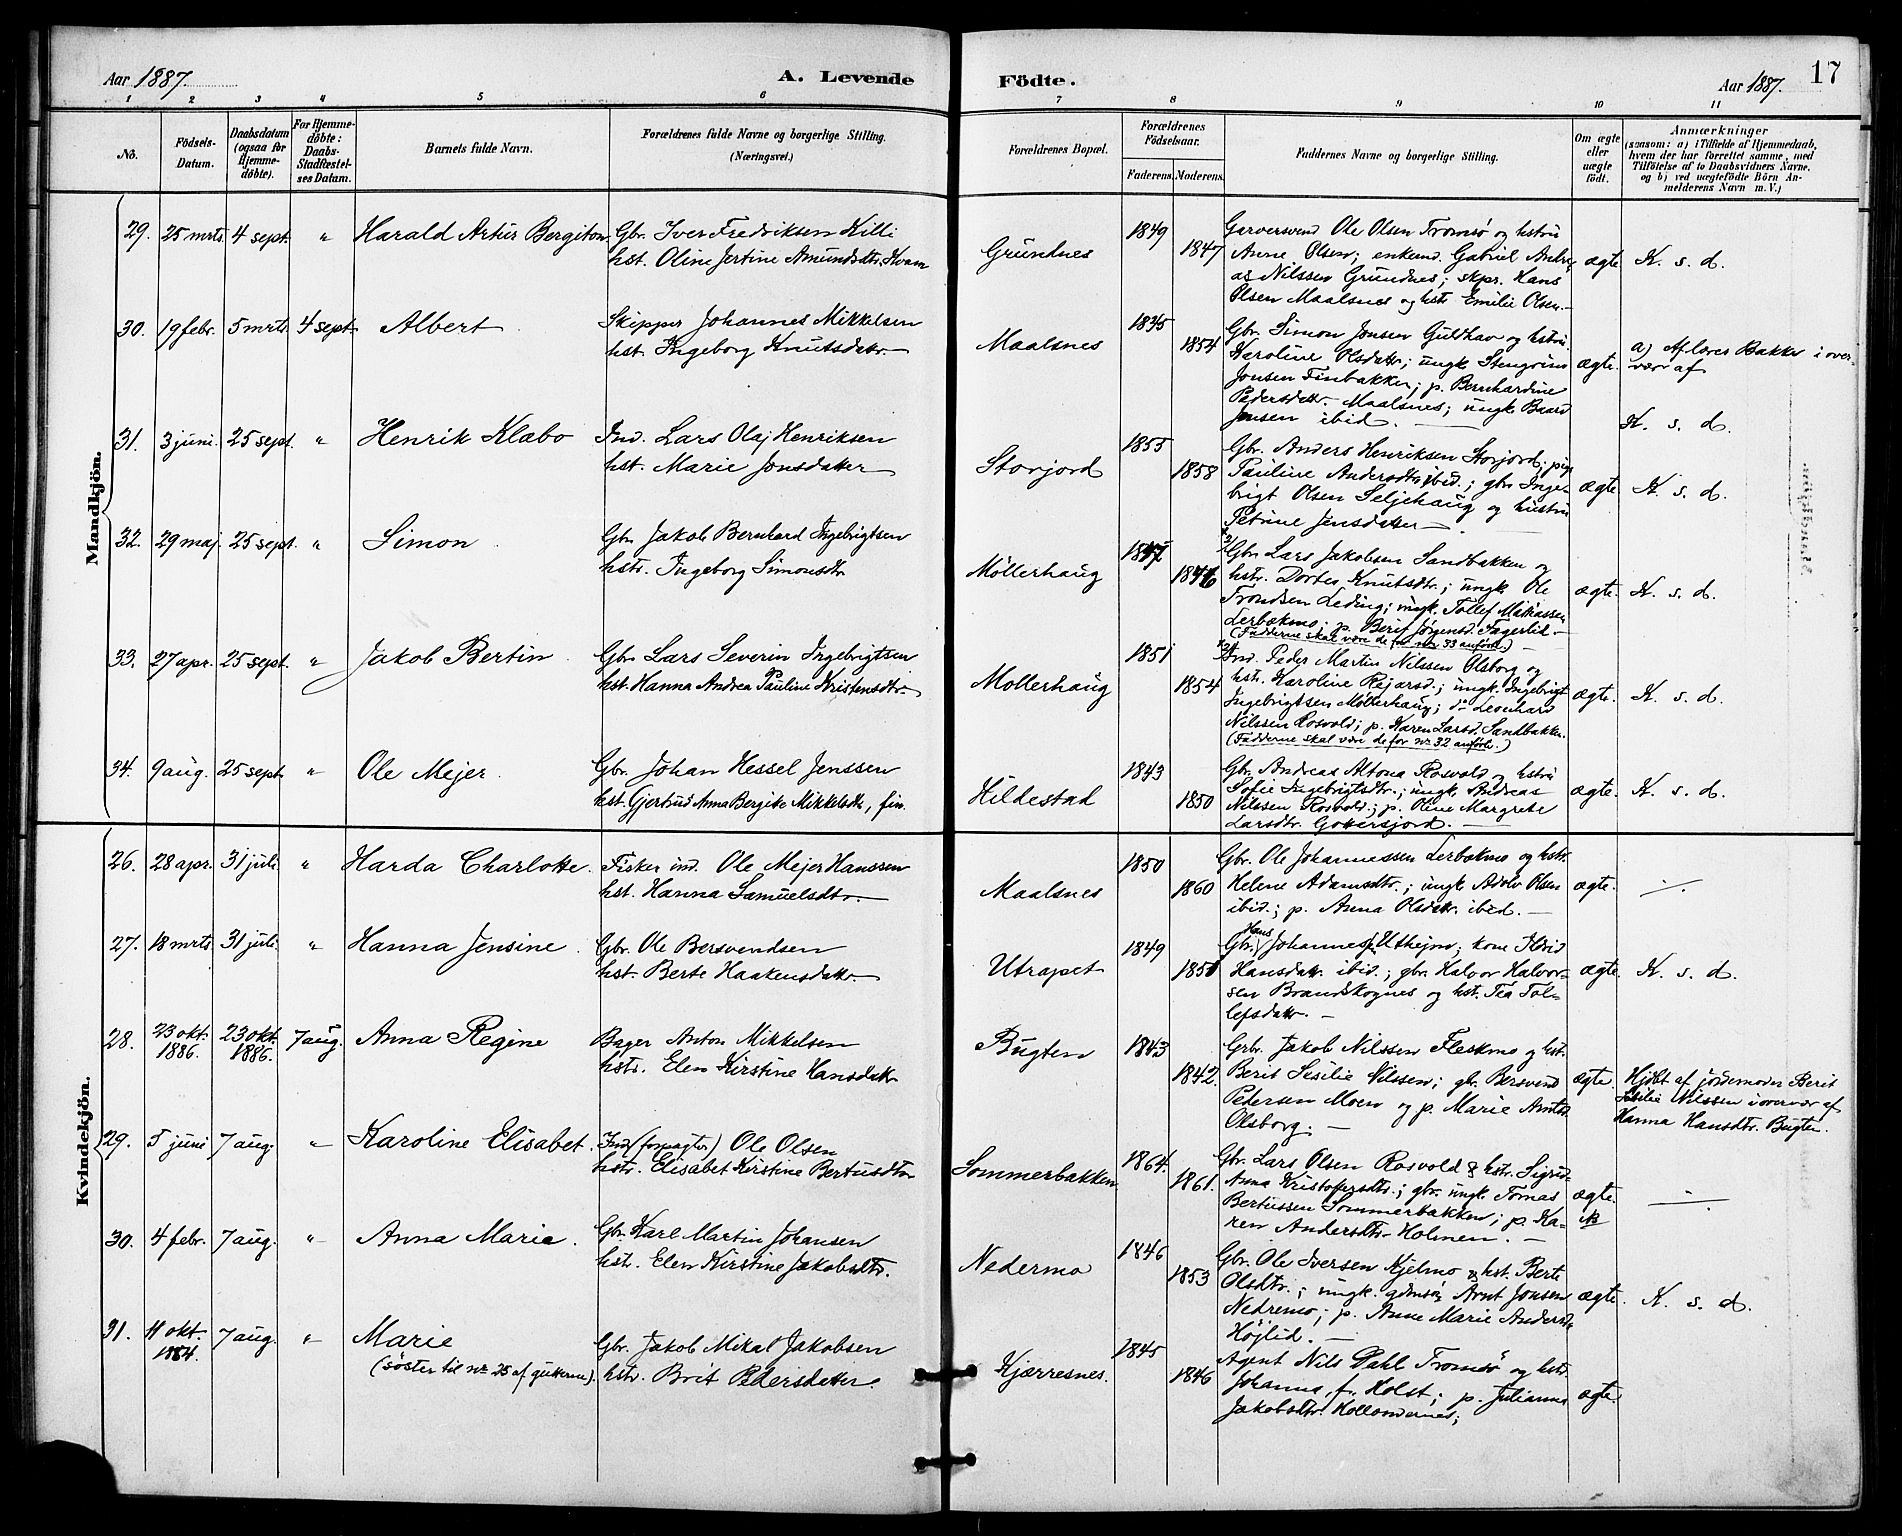 Aar 1887.
A. Levende
Födte.
Aar 1887.
17
1 2 3 4 5 6 7 8 9 10 11
No.
Födsels-
Datum.
Daabsdatum
(ogsaa for
Hjemme-
döbte).
For Hjemme-
döbte:
Daabs-
Stadfæstel-
ses Datum.
Barnets fulde Navn.
Forældrenes fulde Navne og borgerlige Stilling.
(Næringsvei.)
Forældrenes Bopæl.
Forældrenes
Födselsaar.
Faderens. Moderens.
Faddernes Navne og borgerlige Stilling.
Om ægte
eller
uægte
födt.
Anmærkninger
(saasom: a) i Tilfælde af Hjemmedaab,
hvem der har forrettet samme, med
Tilföielse af to Daabsvidners Navne.
og b) ved uægtefödte Börn An-
melderens Navn m. V.)
Mandkjön.
29. 25 mrts. 4 sept. " Harald Artur Bergiton Gbr. Iver Fredriksen Killi
hst. Oline Jertine Amundsdtr. Kvam
Grundnes 1849 1847
Garversvend Ole Olsen Tromsø og hstru
Anne Olsen; enkemd. Gabriel Andre-
as Nilssen Grundnes; skpr. Hans
Olsen Maalsnes og hstr Emilie Olsen.
ægte K. s. d.
30. 19 febr. 5 mrts. 4 sept. Albert Skipper Johannes Mikkelsen
hst. Ingeborg Knutsdatr.
Maalsnes 1835 1854
Gbr. Simon Jonsen Gulhav og hstru
Karoline Olsdatr; ungk Stengrim
Jonsen Finbakken; p. Bernhardine
Pedersdatr. Maalsnes; ungk Baard
Jensen ibid.
ægte. a) Af lærer Bakke i over-
vær af
K. s. d.
31. 3 juni. 25 sept. " Henrik Klæbo Ind. Lars Olaj Henriksen
hst. Marie Jonsdatter
Storjord 1855 1858
Gbr. Anders Henriksen Storjord; pige
Pauline Andersdtr ibid.; gbr Inge-
brigt Olsen Seljehaug og hustru
Petrine Jensdatter
ægte K. s. d.
32. 29 maj. 25 sept. " Simon Gbr. Jakob Bernhard Ingebrigtsen
hstr. Ingeborg Simonsdtr
Møllerhaug 1847 1846
Gbr Lars Jakobsen Sandbakken og
hstr. Dortea Knutsdtr.; ungk Ole
Trondsen Leding; ungk. Tollef Matiassen
Lerbækmo; p. Berit Jørgensd. Fagerlid.
(Fadderne skal være de for nr 33 anførte.)
ægte. K. s. d.
33. 27 apr. 25 sept. " Jakob Bertin Gbr. Lars Severin Ingebrigtsen
hst. Hanna Andrea Pauline Kristensdtr.
Møllerhaug 1851 1854
Ind. Peder Martin Nilssen Olsborg og
hst. Karoline Rejarsd.; ungk. Ingebrigt
Ingebrigtsen Møllerhaug; do Leonhard
Nilssen Rosvold; p. Karen Larsd. Sandbakken.
(Fadderne skal være de for nr 32 anførte.)
ægte. K. s. d.
34. 9 aug. 25 sept. " Ole Mejer. Gbr. Johan Hessel Jenssen
hst. Gjertrud Anna Bergite Mikkelsdtr, fin.
Hildestad 1843 1850
Gbr. Andreas Altona Rosvold og hstru
Sofie Ingebrigtsdtr.; ungk Andreas
Nilssen Rosvold; p. Oline Margrete
Larsdtr. Gottersjord.
ægte. K. s. d.
Kvindekjön.
26. 28 apr. 31 juli. " Harda Charlotte. Fisker ind. Ole Mejer Hanssen
hst. Hanna Samuelsdtr.
Maalsnes 1850 1860
Gbr. Ole Johannessen Lerbækmo og hstr.
Helene Adamsdtr.; ungk Adolv Olsen
ibid.; p. Anna Olsdatr. ibid.
ægte.
27. 18 mrts 31 juli. " Hanna Jensine. Gbr. Ole Bersvendsen
hst. Berte Haakensdatr.
Utrapet 1849 1851
Gbr. Hans Johannes Uthejm; kone Ildrid
Hansdatr. ibid.; gbr. Halvor Halvor-
sen Brandskognes og hst. Tea Tol-
lefsdatr.
ægte. K. s. d.
28. 23 okt. 1886. 23 okt. 1886. 7 aug. Anna Regine Bager Anton Mikkelsen
hstr. Elen Kirstine Hansdatr
Bugten 1843 1842.
Grb. Jakob Nilssen Fleskmo og hst.
Berit Sesilie Nilssen; gbr. Bersvend
Pedersen Moen og p. Marie Arntsd.
Olsborg.
ægte. Hjdbt af jordemoder Berit
Sesilie Nilssen i overvær af
Hanna Hansdtr. Bugten.
29. 5 juni 7 aug. " Karoline Elisabet. Ind (forpagter) Ole Olsen
hstr. Elisabet Kirstine Bertusdtr
Sommerbakken 1864. 1861.
Gbr. Lars Olsen Rosvold & hstr. Sigrid
Anna Kristoffersdtr.; gbr. ungk Tomas
Bertussen Sommerbakken; p. Ka-
ren Andersdtr. Holmen.
ægte.
30. 4 febr. 7 aug. " Anna Marie. Gbr. Karl Martin Johansen
hst. Elen Kirstine Jakobsdtr.
Nedermo 1846 1853
Gbr. Ole Iversen Kjelmo & hst. Berte
Olsdtr.; ungk. gdmsøn Arnt Jonsen
Nedremo; p. Anne Marie Andersdr
Højlid.
ægte. K. s. d.
31. 11 okt. 1884. 7 aug. " Marie
(søster til nr 25 af gutterne).
Gbr. Jakob Mikal Jakobsen
hstr. Brit Pedersdatter.
Kjærresnes. 1845 1846
Agent Nils Dahl Tromsø og hstr.
Johanna, f. Holst; p. Julianna
Jakobsdtr. Hollændernes;
ægte.